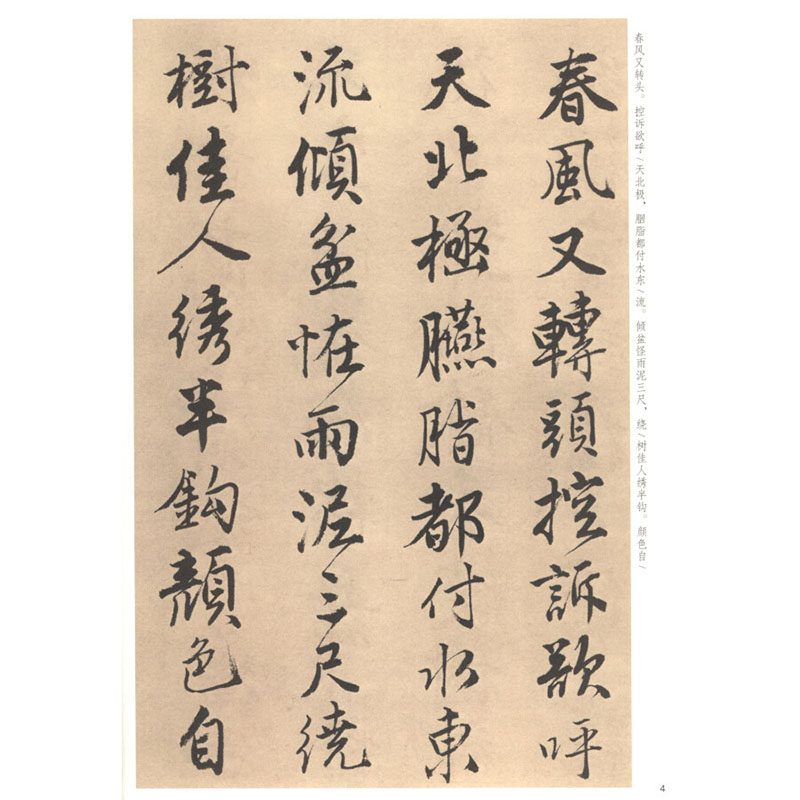 春风又转头。控诉欲呼/天北极，胭脂都付水东/流。倾盆怪雨泥三尺，绕/树佳人绣半钩。颜色自/
春風又轉頭控訴欲呼
天北極臙脂都付水東
流傾盆恠雨泥三尺繞
樹佳人綉半鈎顏色自
4